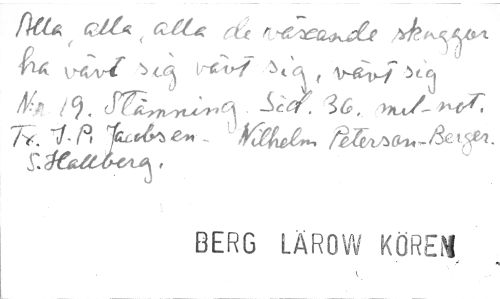 Alla, alla, alla de växande skuggor
ha vävt sig vävt sig, vävt sig
N:r 19. Stämning. Sid. 36. mel-not.
Tx. J.P. Jacobsen. Wilhelm Peterson-Berger.
S. Hallberg.
BERG LÄROW KÖREN